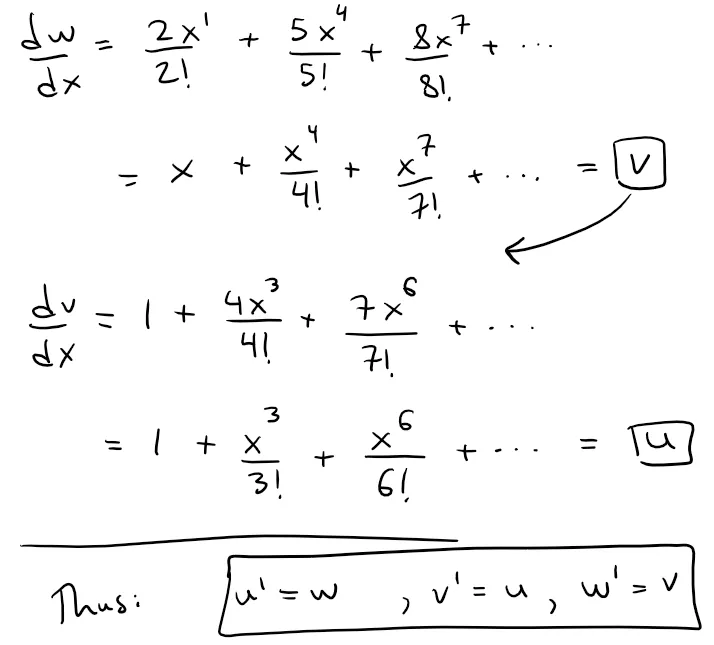 dw/dx = 2x¹/2! + 5x⁴/5! + 8x⁷/8! + ...
= x + x⁴/4! + x⁷/7! + ... = v
dv/dx = 1 + 4x³/4! + 7x⁶/7! + ...
= 1 + x³/3! + x⁶/6! + ... = u
Thus: u' = w , v' = u , w' = v